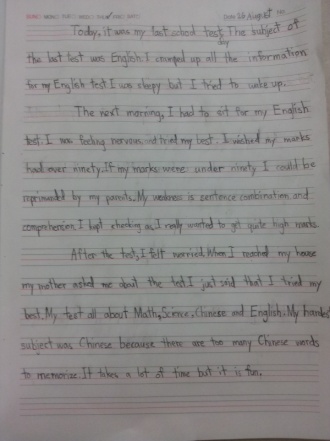 Today, it was my last school test. The subject of
the last test was English. I crammed up all the information
for my English test. I was sleepy but I tried to wake up.
The next morning, I had to sit for my English
test. I was feeling nervous and tried my best. I wished my marks
had over ninety. If my marks were under ninety I could be
reprimanded by my parents. My weakness is sentence combination and
comprehension. I kept checking as I really wanted to get quite high marks.
After the test, I felt worried. When I reached my house
my mother asked me about the test. I just said that I tried my
best. My test all about Math, Science, Chinese and English. My hardest
subject was Chinese because there are too many Chinese words
to memorize. It takes a lot of time but it is fun.